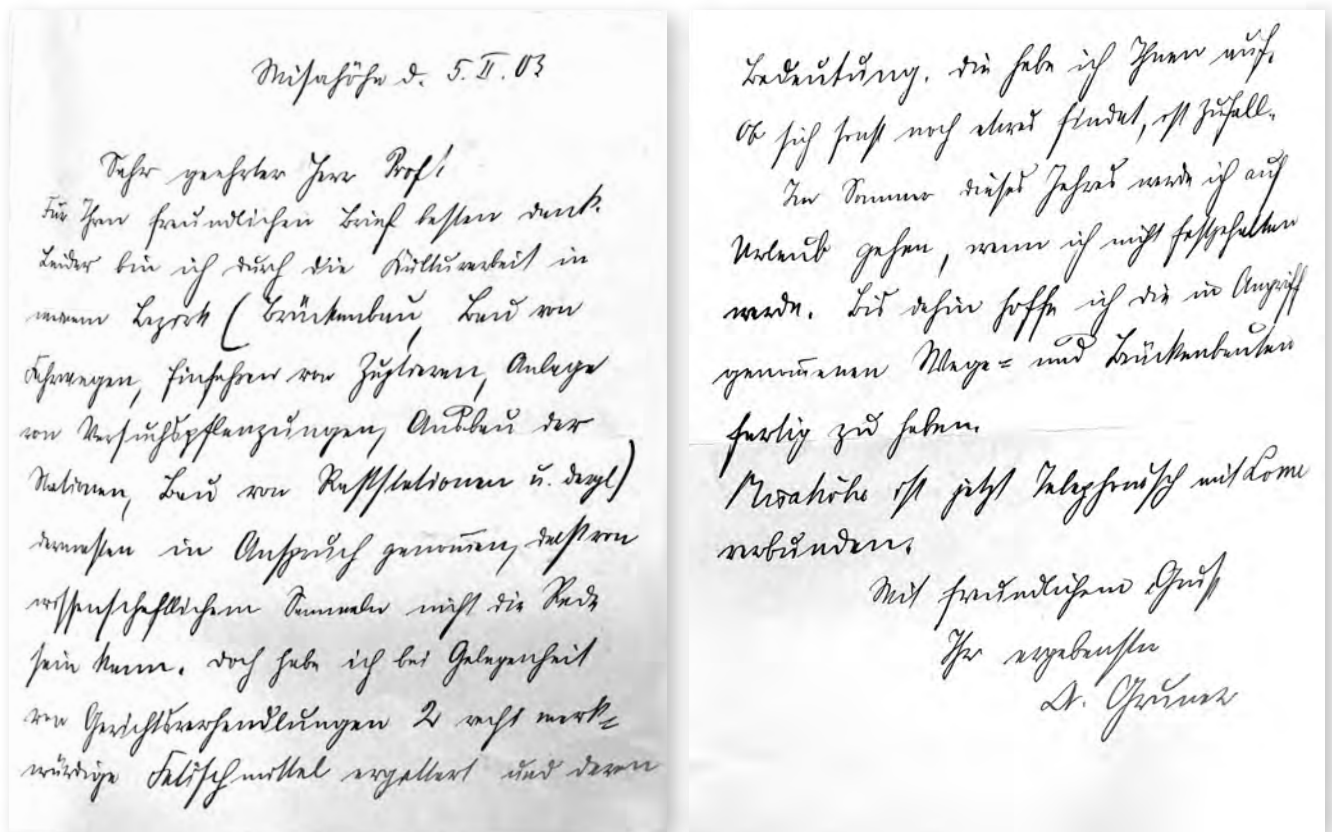 Misahöhe d. 5. II. 03
Sehr geehrter Herr Prof!
Für Ihren freundlichen Brief besten Dank.
Leider bin ich durch die Kulturarbeit in
meinem Bezirk (Brückenbau, Bau von
Fahrwegen, Einfahren von Zugtieren, Anlage
von Versuchspflanzungen, Ausbau der
Stationen, Bau von Raststationen u. dergl)
dermassen in Anspruch genom̄en, dass von
wissenschaftlichem Sammeln nicht die Rede
sein kann. Doch habe ich bei Gelegenheit
von Gerichtsverhandlungen 2 recht merk=
würdige Fetischmittel ergattert und deren
Bedeutung. Die hebe ich Ihnen auf.
Ob sich sonst noch etwas findet, ist Zufall.
Im Sommer dieses Jahres werde ich auf
Urlaub gehen, wenn ich nicht festgehalten
werde. Bis dahin hoffe ich die in Angriff
genom̄enen Wege= und Brückenbauten
fertig zu haben.
Misahöhe ist jetzt Telephonisch mit Lome
verbunden.
Mit freundlichem Gruss
Ihr ergebenster
Gruner